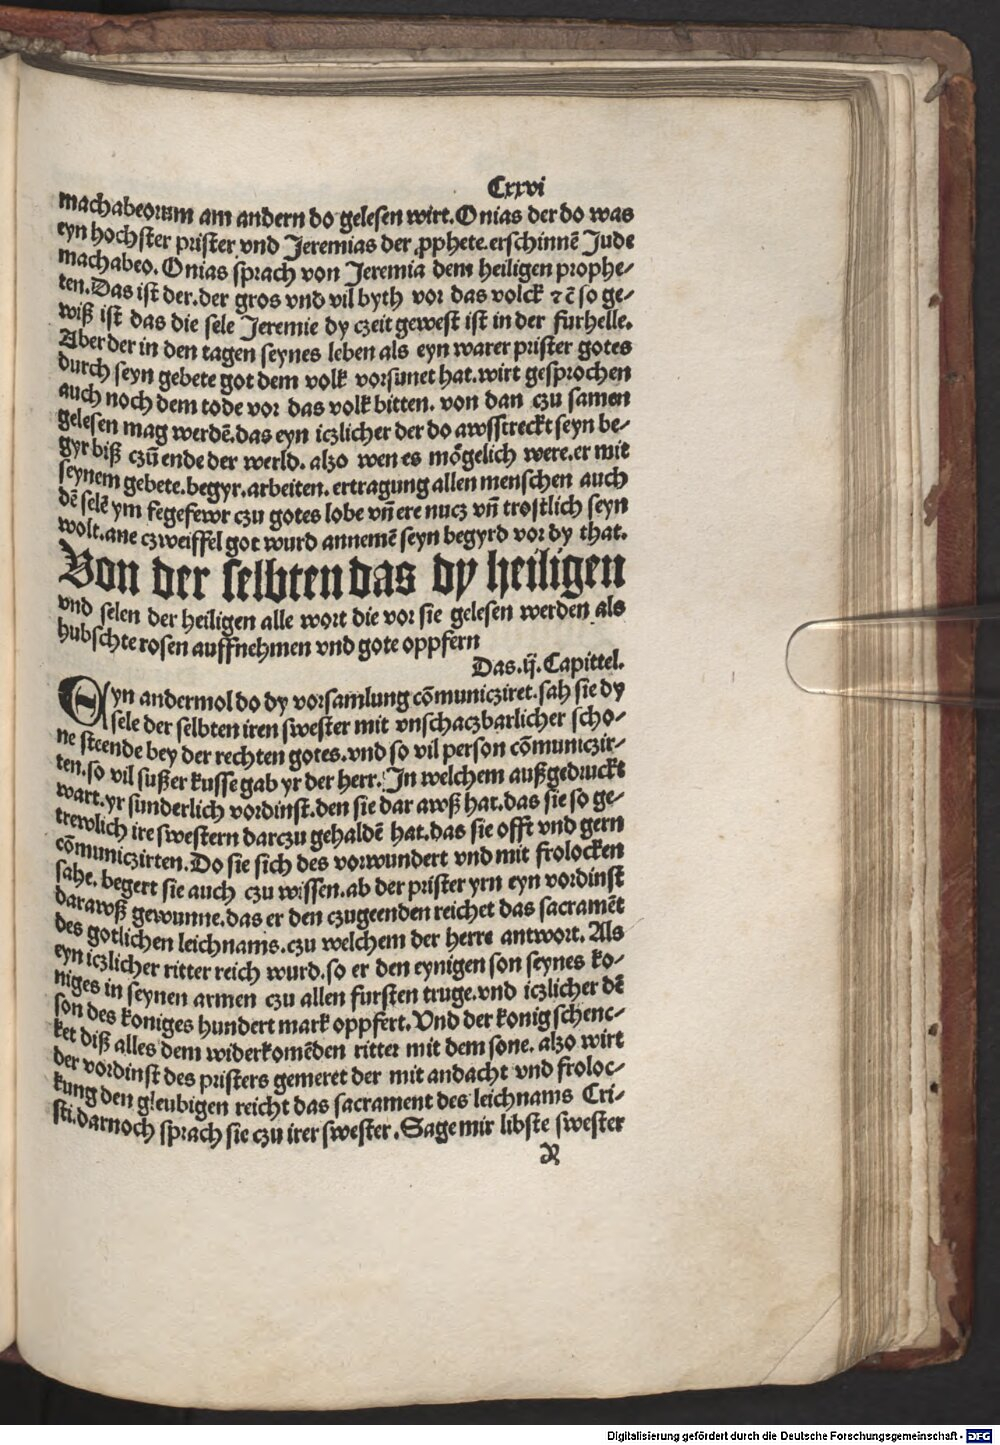 Cxxvi
machabeorum am andern do gelesen wirt. Onias der do was
eyn hochster prister vnd Jeremias der ꝓphete. erschinnē Jude
machabeo. Onias sprach von Jeremia dem heiligen prophe⸗
ten. Das ist der. der gros vnd vil byth vor das volck ⁊ č so ge⸗
wiß ist das die sele Jeremie dy czeit gewest ist in der furhelle.
Aber der in den tagen seynes leben als eyn warer prister gotes
durch seyn gebete got dem volk vorsunet hat. wirt gesprochen
auch noch dem tode vor das volk bitten. von dan czu samen
gelesen mag werdē. das eyn iczlicher der do awsstreckt seyn be⸗
gyr biß czū ende der werld. alzo wen es mőgelich were. er mit
seynem gebete. begyr. arbeiten. ertragung allen menschen auch
dē selē ym fegefewr czu gotes lobe vñ ere nucz vñ trostlich seyn
wolt. ane czweiffel got wurd annemē seyn begyrd vor dy that.
Von der selbten das dy heiligen
vnd selen der heiligen alle wort die vor sie gelesen werden als
hubschte rosen auffnehmen vnd gote oppfern
Das .ij. Capittel.
Eyn andermol do dy vorsamlung cōmunicziret. sah sie dy
sele der selbten iren swester mit vnschaczbarlicher scho⸗
ne steende bey der rechten gotes. vnd so vil person cōmuniczir⸗
ten. so vil sußer kusse gab yr der herr. In welchem außgedruckt
wart. yr sunderlich vordinst. den sie dar awß hat. das sie so ge⸗
trewlich ire swestern darczu gehaldē hat. das sie offt vnd gern
cōmuniczirten. Do sie sich des vorwundert vnd mit frolocken
sahe. begert sie auch czu wissen. ab der prister yrn eyn vordinst
darawß gewunne. das er den czugeenden reichet das sacramēt
des gotlichen leichnams. czu welchem der herre antwort. Als
eyn iczlicher ritter reich wurd. so er den eynigen son seynes ko⸗
niges in seynen armen czu allen fursten truge. vnd iczlicher dē
son des koniges hundert mark oppfert. Vnd der konig schenc⸗
ket diß alles dem widerkomēden ritter mit dem sone. alzo wirt
der vordinst des pristers gemeret der mit andacht vnd froloc⸗
kung den gleubigen reicht das sacrament des leichnams Cri⸗
sti. darnoch sprach sie czu irer swester. Sage mir libste swester
Digitalisierung gefördert durch die Deutsche Forschungsgemeinschaft - DFG